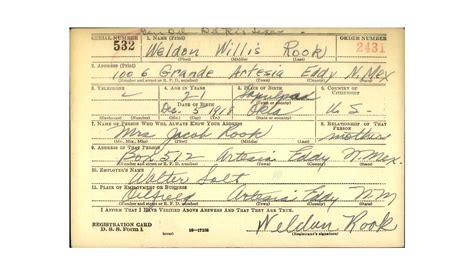 SERIAL NUMBER 1. NAME (Print) ORDER NUMBER
532 Weldon Willis Rook 2431
(First) (Middle) (Last)
2. ADDRESS (Print)
1006 Grande Artesia Eddy N. Mex
(Number and street or R. F. D. number) (Town) (County) (State)
3. TELEPHONE 4. AGE IN YEARS 5. PLACE OF BIRTH 6. COUNTRY OF CITIZENSHIP
21
DATE OF BIRTH
Dec. 5 1918 Okla U.S.
(Mo.) (Day) (Yr.) (State or country)
7. NAME OF PERSON WHO WILL ALWAYS KNOW YOUR ADDRESS 8. RELATIONSHIP OF THAT PERSON
Mrs Jacob Rook mother
(Mr., Mrs., Miss) (First) (Middle) (Last)
9. ADDRESS OF THAT PERSON
Box 512 Artesia Eddy N. Mex.
(Number and street or R. F. D. number) (Town) (County) (State)
10. EMPLOYER'S NAME
Walter Solt
11. PLACE OF EMPLOYMENT OR BUSINESS
Oilfield Artesia Eddy N M
(Number and street or R. F. D. number) (Town) (County) (State)
I AFFIRM THAT I HAVE VERIFIED ABOVE ANSWERS AND THAT THEY ARE TRUE.
REGISTRATION CARD
D. S. S. Form 1 16-17105 Weldon Rook
(Registrant's signature)